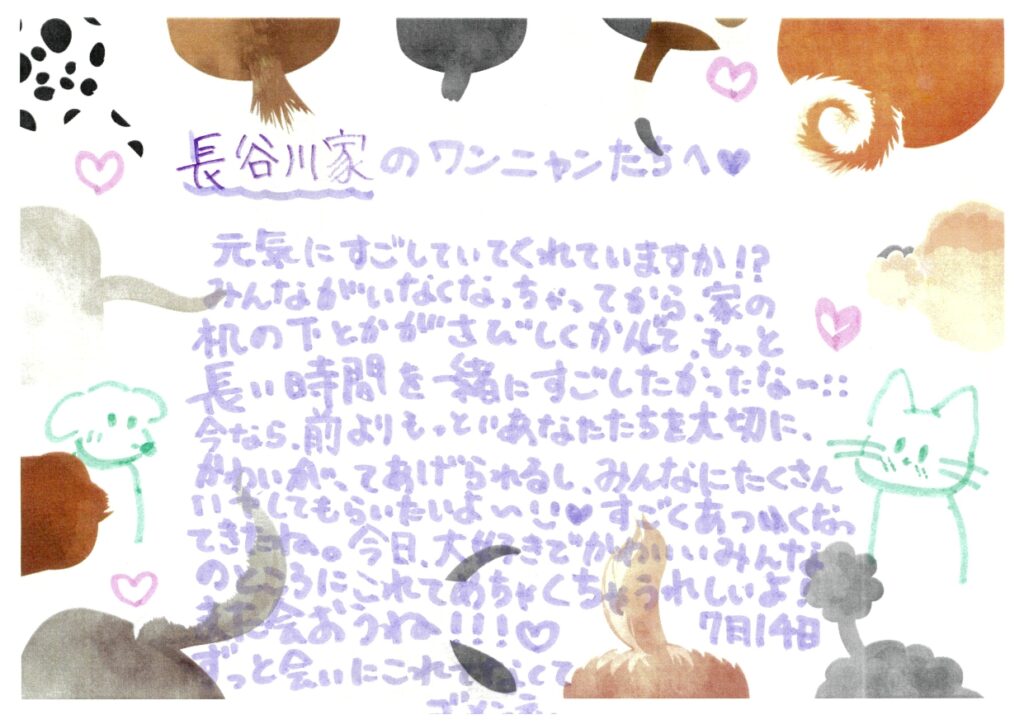 長谷川家のワンニャンたちへ♥
元気にすごしていてくれていますか!?
みんながいなくなっちゃってから、家の
机の下とかがさびしくかんじて、もっと
長い時間を一緒にすごしたかったな〜::
今なら、前よりもっといあなたたちを大切に、
かわいがってあげられるし、みんなにたくさん
いやしてもらいたいよ〜♥すごくあつくなっ
てきたね。今日、大好きでかわいいみんな
のところにこれてめちゃくちゃうれしいよ!
また会おうね!!!♡ 7月14日
ずっと会いにこれてなくて
ごめんね